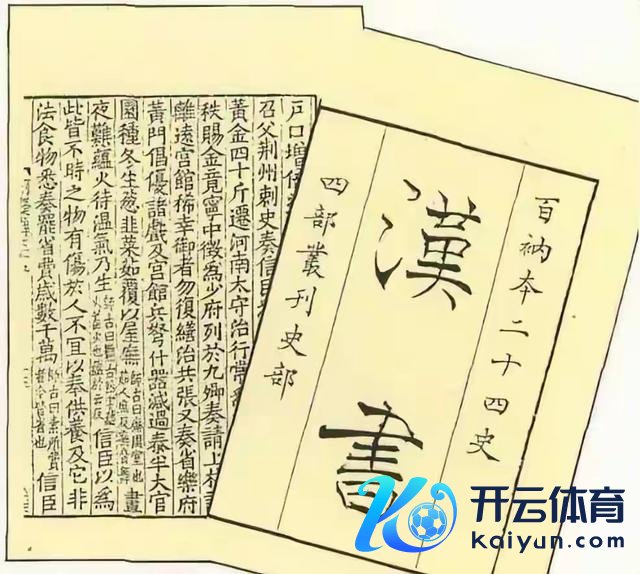 戸口增倍
召父荆州刺史奏信臣
黃金四十斤遷河南太守治行常爲
秩賜金竟寧中徵爲少府列於九卿奏請上林
離遠宮館稀幸御者勿復繕治共張又奏省樂府
黃門倡優諸戲及宮館兵弩什器減過泰半大官
園種冬生葱韭菜茹覆以屋廡 師古曰 晝
夜難蘊火待溫氣乃生 師古曰 信臣以爲
此皆不時之物有傷於人不宜以奉供養及它非
法食物悉奏罷省費歲數千萬 師古曰素所費 信臣
百衲本二十四史
漢書
四部叢刊史部
开云体育
kaiyun.com